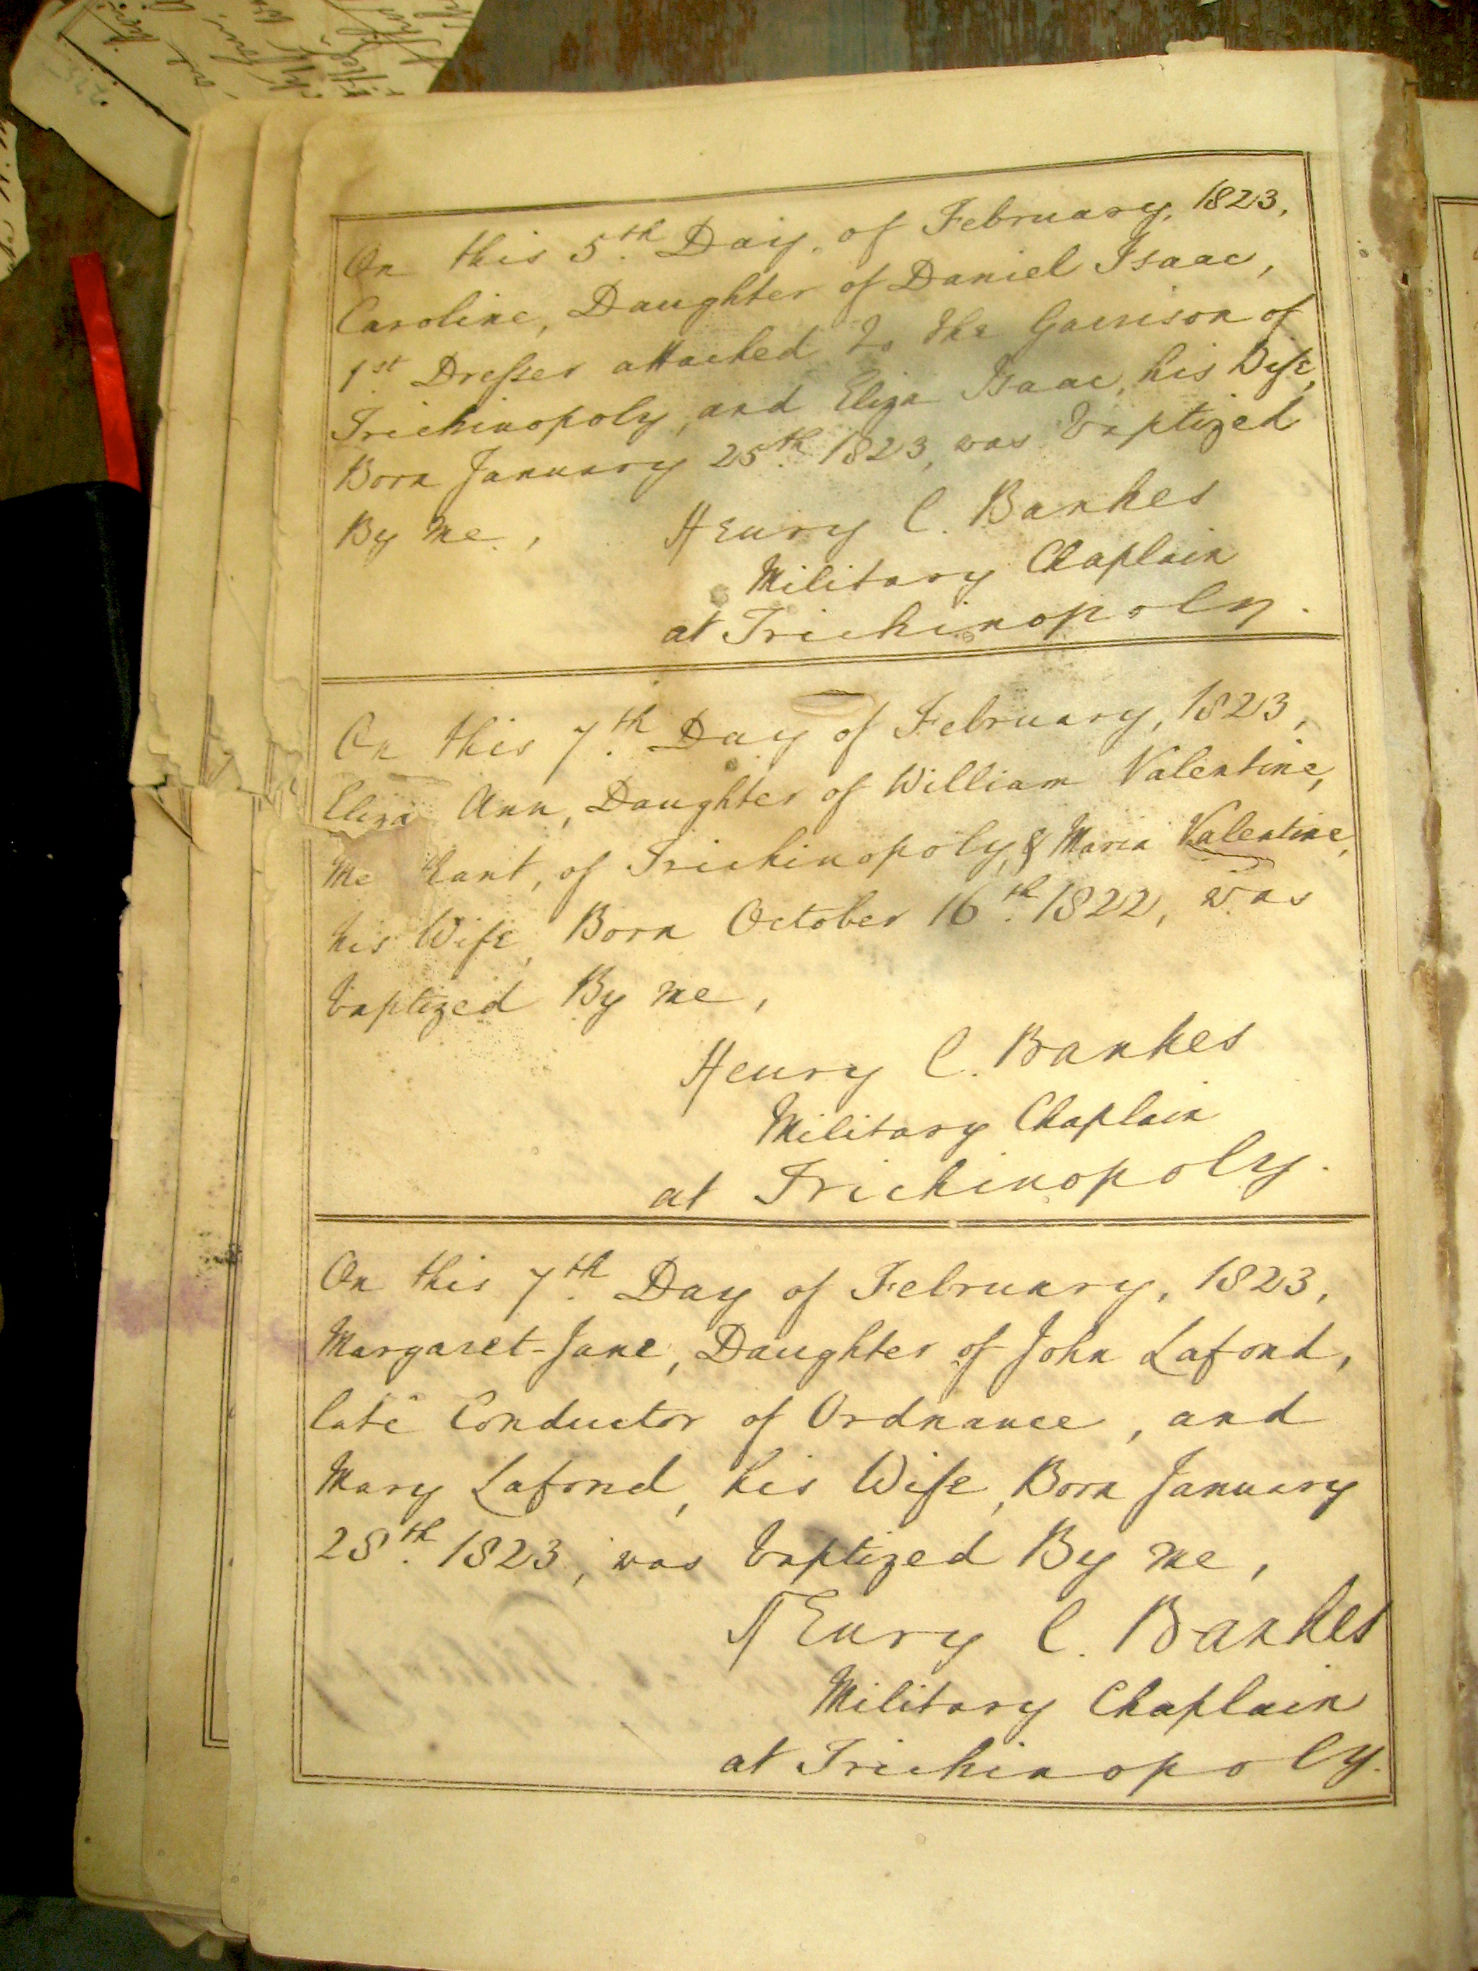 On this 5th Day, of February, 1823,
Caroline, Daughter of Daniel Isaac,
1st Dresser attached to the Garrison of
Trichinopoly, and Eliza Isaac, his Wife,
Born January 25th 1823, was baptized
By me,
Henry C. Bankes
Military Chaplain
at Trichinopoly.
On this 7th Day of February, 1823,
Eliza Ann, Daughter of William Valentine,
of Trichinopoly, & Maria Valentine,
his Wife, Born October 16th 1822, was
baptized By me,
Henry C. Bankes
Military Chaplain
at Trichinopoly.
On this 7th Day of February, 1823,
Margaret-Jane, Daughter of John Lafond,
late Conductor of Ordnance, and
Mary Lafond, his Wife, Born January
28th 1823, was baptized By me,
Henry C. Bankes
Military Chaplain
at Trichinopoly.